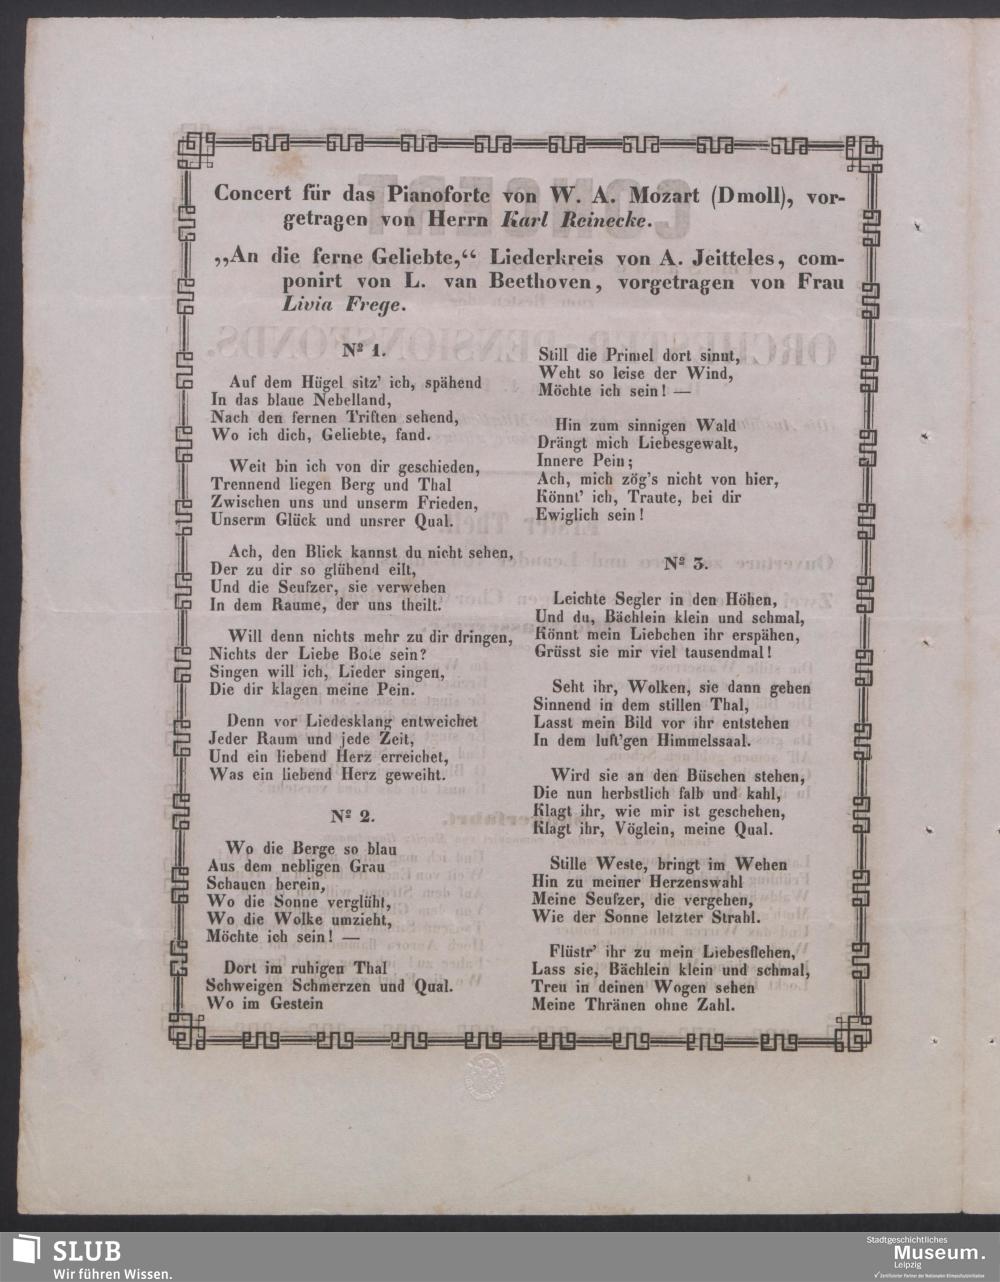 Concert für das Pianoforte von W. A. Mozart (Dmoll), vor-
getragen von Herrn Karl Reinecke.
„An die ferne Geliebte,“ Liederkreis von A. Jeitteles, com-
ponirt von L. van Beethoven, vorgetragen von Frau
Livia Frege.
Nº 1.
Auf dem Hügel sitz' ich, spähend
In das blaue Nebelland,
Nach den fernen Triften sehend,
Wo ich dich, Geliebte, fand.
Weit bin ich von dir geschieden,
Trennend liegen Berg und Thal
Zwischen uns und unserm Frieden,
Unserm Glück und unsrer Qual.
Ach, den Blick kannst du nicht sehen,
Der zu dir so glühend eilt,
Und die Seufzer, sie verwehen
In dem Raume, der uns theilt.
Will denn nichts mehr zu dir dringen,
Nichts der Liebe Bote sein?
Singen will ich, Lieder singen,
Die dir klagen meine Pein.
Denn vor Liedesklang entweichet
Jeder Raum und jede Zeit,
Und ein liebend Herz erreichet,
Was ein liebend Herz geweiht.
Nº 2.
Wo die Berge so blau
Aus dem nebligen Grau
Schauen herein,
Wo die Sonne verglüht,
Wo die Wolke umzieht,
Möchte ich sein! —
Dort im ruhigen Thal
Schweigen Schmerzen und Qual.
Wo im Gestein
Still die Primel dort sinnt,
Weht so leise der Wind,
Möchte ich sein! —
Hin zum sinnigen Wald
Drängt mich Liebesgewalt,
Innere Pein;
Ach, mich zög's nicht von hier,
Könnt' ich, Traute, bei dir
Ewiglich sein!
Nº 3.
Leichte Segler in den Höhen,
Und du, Bächlein klein und schmal,
Könnt mein Liebchen ihr erspähen,
Grüsst sie mir viel tausendmal!
Seht ihr, Wolken, sie dann gehen
Sinnend in dem stillen Thal,
Lasst mein Bild vor ihr entstehen
In dem luft'gen Himmelssaal.
Wird sie an den Büschen stehen,
Die nun herbstlich falb und kahl,
Klagt ihr, wie mir ist geschehen,
Klagt ihr, Vöglein, meine Qual.
Stille Weste, bringt im Wehen
Hin zu meiner Herzenswahl
Meine Seufzer, die vergehen,
Wie der Sonne letzter Strahl.
Flüstr' ihr zu mein Liebesflehen,
Lass sie, Bächlein klein und schmal,
Treu in deinen Wogen sehen
Meine Thränen ohne Zahl.
SLUB
Wir führen Wissen.
Stadtgeschichtliches
Museum.
Leipzig
Zertifizierter Partner der Nationalen Klimaschutzinitiative